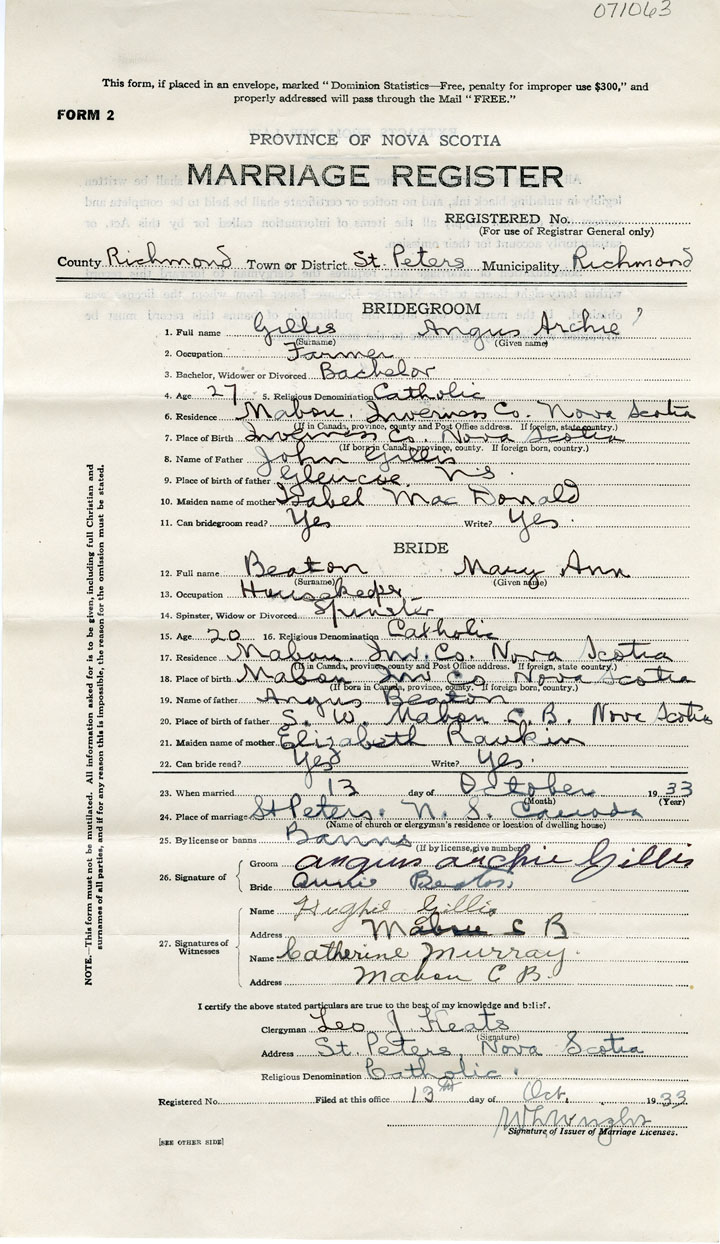 071063
This form, if placed in an envelope, marked "Dominion Statistics—Free, penalty for improper use $300," and
properly addressed will pass through the Mail "FREE."
FORM 2
PROVINCE OF NOVA SCOTIA
MARRIAGE REGISTER
REGISTERED No.
(For use of Registrar General only)
County Richmond Town or District St. Peters Municipality Richmond
BRIDEGROOM
1. Full name Gillis Angus Archie
(Surname) (Given name)
2. Occupation Farmer
3. Bachelor, Widower or Divorced Bachelor
4. Age 27 5. Religious Denomination Catholic
6. Residence Mabou, Inverness Co. Nova Scotia
(If in Canada, province, county and Post Office address. If foreign, state country.)
7. Place of Birth Inverness Co. Nova Scotia
(If born in Canada, province, county. If foreign born, country.)
8. Name of Father John Gillis
9. Place of birth of father Glencoe, N.S.
10. Maiden name of mother Isabel Mac Donald
11. Can bridegroom read? Yes Write? Yes.
BRIDE
12. Full name Beaton Mary Ann
(Surname) (Given name)
13. Occupation Housekeeper
14. Spinster, Widow or Divorced Spinster
15. Age 20 16. Religious Denomination Catholic
17. Residence Mabou, Inv. Co. Nova Scotia
(If in Canada, province, county and Post Office address. If foreign, state country.)
18. Place of birth Mabou Inv Co Nova Scotia
(If born in Canada, province, county. If foreign born, country.)
19. Name of father Angus Beaton
20. Place of birth of father S. W. Mabou C.B. Nova Scotia
21. Maiden name of mother Elizabeth Rankin
22. Can bride read? Yes Write? Yes.
23. When married 13 day of October 1933
(Month) (Year)
24. Place of marriage St Peters, N.S. Canada
(Name of church or clergyman's residence or location of dwelling house)
25. By license or banns Banns
(If by license, give number)
26. Signature of
Groom Angus Archie Gillis
Bride Annie Beaton
27. Signatures of Witnesses
Name Hughie Gillis
Address Mabou C B
Name Catherine Murray
Address Mabou C B.
I certify the above stated particulars are true to the best of my knowledge and belief.
Clergyman Leo J Keats
(Signature)
Address St. Peters, Nova Scotia
Religious Denomination Catholic.
Registered No. Filed at this office 13th day of Oct. 1933
Signature of Issuer of Marriage Licenses.
[SEE OTHER SIDE]
NOTE.—This form must not be mutilated. All information asked for is to be given, including full Christian and
surnames of all parties, and if for any reason this is impossible, the reason for the omission must be stated.